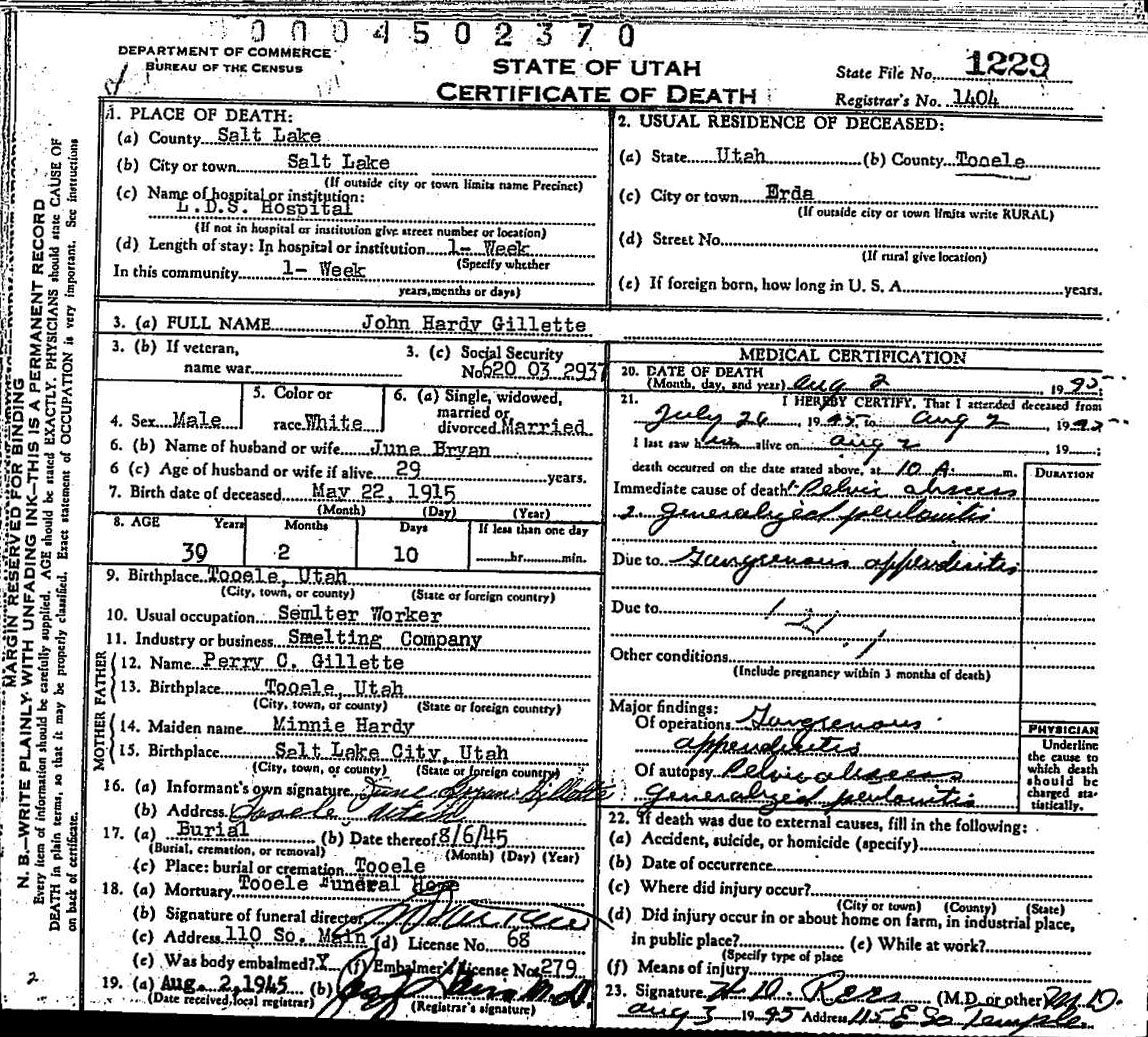 0004502370
DEPARTMENT OF COMMERCE
BUREAU OF THE CENSUS
STATE OF UTAH
CERTIFICATE OF DEATH
State File No. 1229
Registrar's No. 1404
MARGIN RESERVED FOR BINDING
N. B.—WRITE PLAINLY WITH UNFADING INK—THIS IS A PERMANENT RECORD
Every item of information should be carefully supplied. AGE should be stated EXACTLY. PHYSICIANS should state CAUSE OF
DEATH in plain terms, so that it may be properly classified. Exact statement of OCCUPATION is very important. See instructions
on back of certificate.
1. PLACE OF DEATH:
(a) County Salt Lake
(b) City or town Salt Lake
(If outside city or town limits name Precinct)
(c) Name of hospital or institution:
L.D.S. Hospital
(If not in hospital or institution give street number or location)
(d) Length of stay: In hospital or institution 1- Week
(Specify whether
In this community 1- Week
years, months or days)
2. USUAL RESIDENCE OF DECEASED:
(a) State Utah (b) County Tooele
(c) City or town Erda
(If outside city or town limits write RURAL)
(d) Street No.
(If rural give location)
(e) If foreign born, how long in U. S. A. years.
3. (a) FULL NAME John Hardy Gillette
3. (b) If veteran,
name war
3. (c) Social Security
No 620 03 2937
4. Sex Male
5. Color or
race White
6. (a) Single, widowed,
married or
divorced Married
6. (b) Name of husband or wife June Bryan
6 (c) Age of husband or wife if alive 29 years.
7. Birth date of deceased May 22, 1915
(Month) (Day) (Year)
8. AGE Years Months Days If less than one day
30 2 10 hr. min.
9. Birthplace Tooele, Utah
(City, town, or county) (State or foreign country)
10. Usual occupation Semlter Worker
11. Industry or business Smelting Company
FATHER
12. Name Perry C. Gillette
13. Birthplace Tooele, Utah
(City, town, or county) (State or foreign country)
MOTHER
14. Maiden name Minnie Hardy
15. Birthplace Salt Lake City, Utah
(City, town, or county) (State or foreign country)
16. (a) Informant's own signature June Bryan Gillette
(b) Address Tooele Utah
17. (a) Burial (b) Date thereof 8/6/45
(Burial, cremation, or removal) (Month) (Day) (Year)
(c) Place: burial or cremation Tooele
18. (a) Mortuary Tooele Funeral Home
(b) Signature of funeral director
(c) Address 110 So. Main (d) License No. 68
(e) Was body embalmed? Y (f) Embalmer's License No. 279
19. (a) Aug. 2, 1945 (b) M.D.
(Date received local registrar) (Registrar's signature)
MEDICAL CERTIFICATION
20. DATE OF DEATH
(Month, day, and year) Aug 2 1945
21. I HEREBY CERTIFY, That I attended deceased from
July 26, 1945, to Aug 2 1945
I last saw him alive on Aug 2, 19
death occurred on the date stated above, at 10 A. m.
DURATION
Immediate cause of death 1. Pelvic abscess
2. generalized peritonitis
Due to Gangrenous appendicitis
Due to
121.1
Other conditions
(Include pregnancy within 3 months of death)
Major findings:
Of operations Gangrenous
appendicitis
Of autopsy Pelvic abscess
generalized peritonitis
PHYSICIAN
Underline
the cause to
which death
should be
charged sta-
tistically.
22. If death was due to external causes, fill in the following:
(a) Accident, suicide, or homicide (specify)
(b) Date of occurrence
(c) Where did injury occur?
(City or town) (County) (State)
(d) Did injury occur in or about home on farm, in industrial place,
in public place? (e) While at work?
(Specify type of place
(f) Means of injury
23. Signature H. D. Rees (M.D. or other) M.D.
Aug 3 1945 Address 115 E So Temple